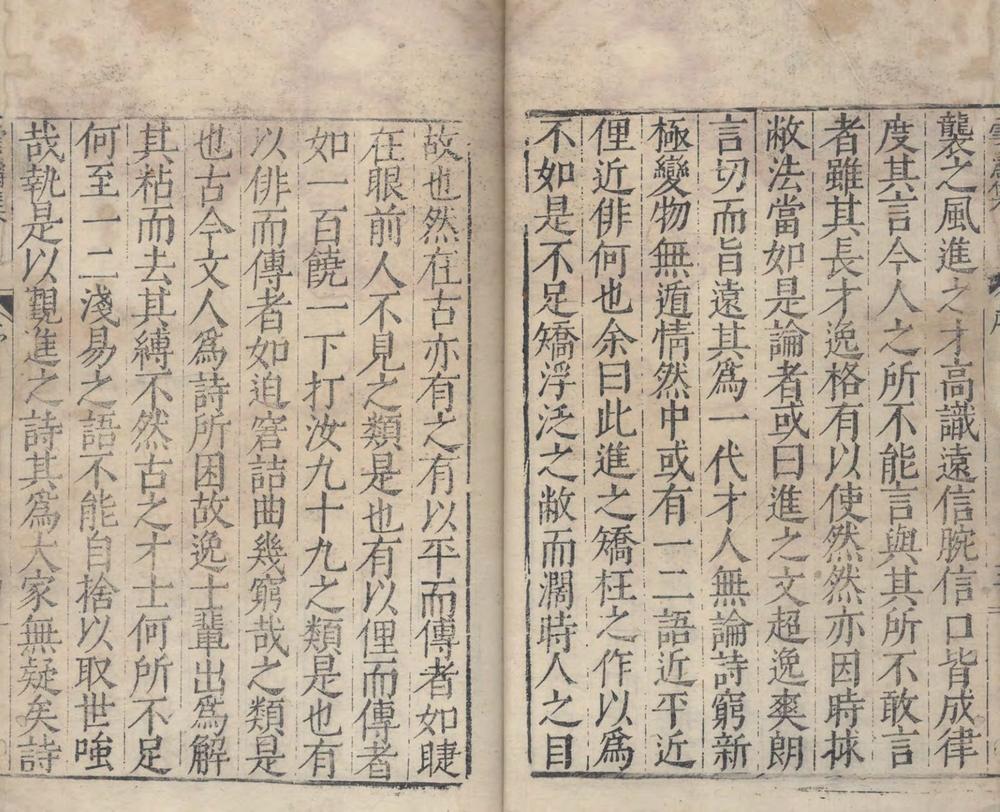 襲之風進之才高識遠信腕信口皆成律
度其言今人之所不能言與其所不敢言
者雖其長才逸格有以使然然亦因時捄
敝法當如是論者或曰進之文超逸爽朗
言切而旨遠其為一代才人無論詩窮新
極變物無遁情然中或有一二語近平近
俚近俳何也余曰此進之矯枉之作以為
不如是不足矯浮泛之敝而濶時人之目
故也然在古亦有之有以平而傳者如睫
在眼前人不見之類是也有以俚而傳者
如一百饒一下打汝九十九之類是也有
以俳而傳者如迫窘詰曲幾窮哉之類是
也古今文人為詩所困故逸士輩出為解
其粘而去其縛不然古之才士何所不足
何至一二淺易之語不能自捨以取世嗤
哉執是以觀進之詩其為大家無疑矣詩